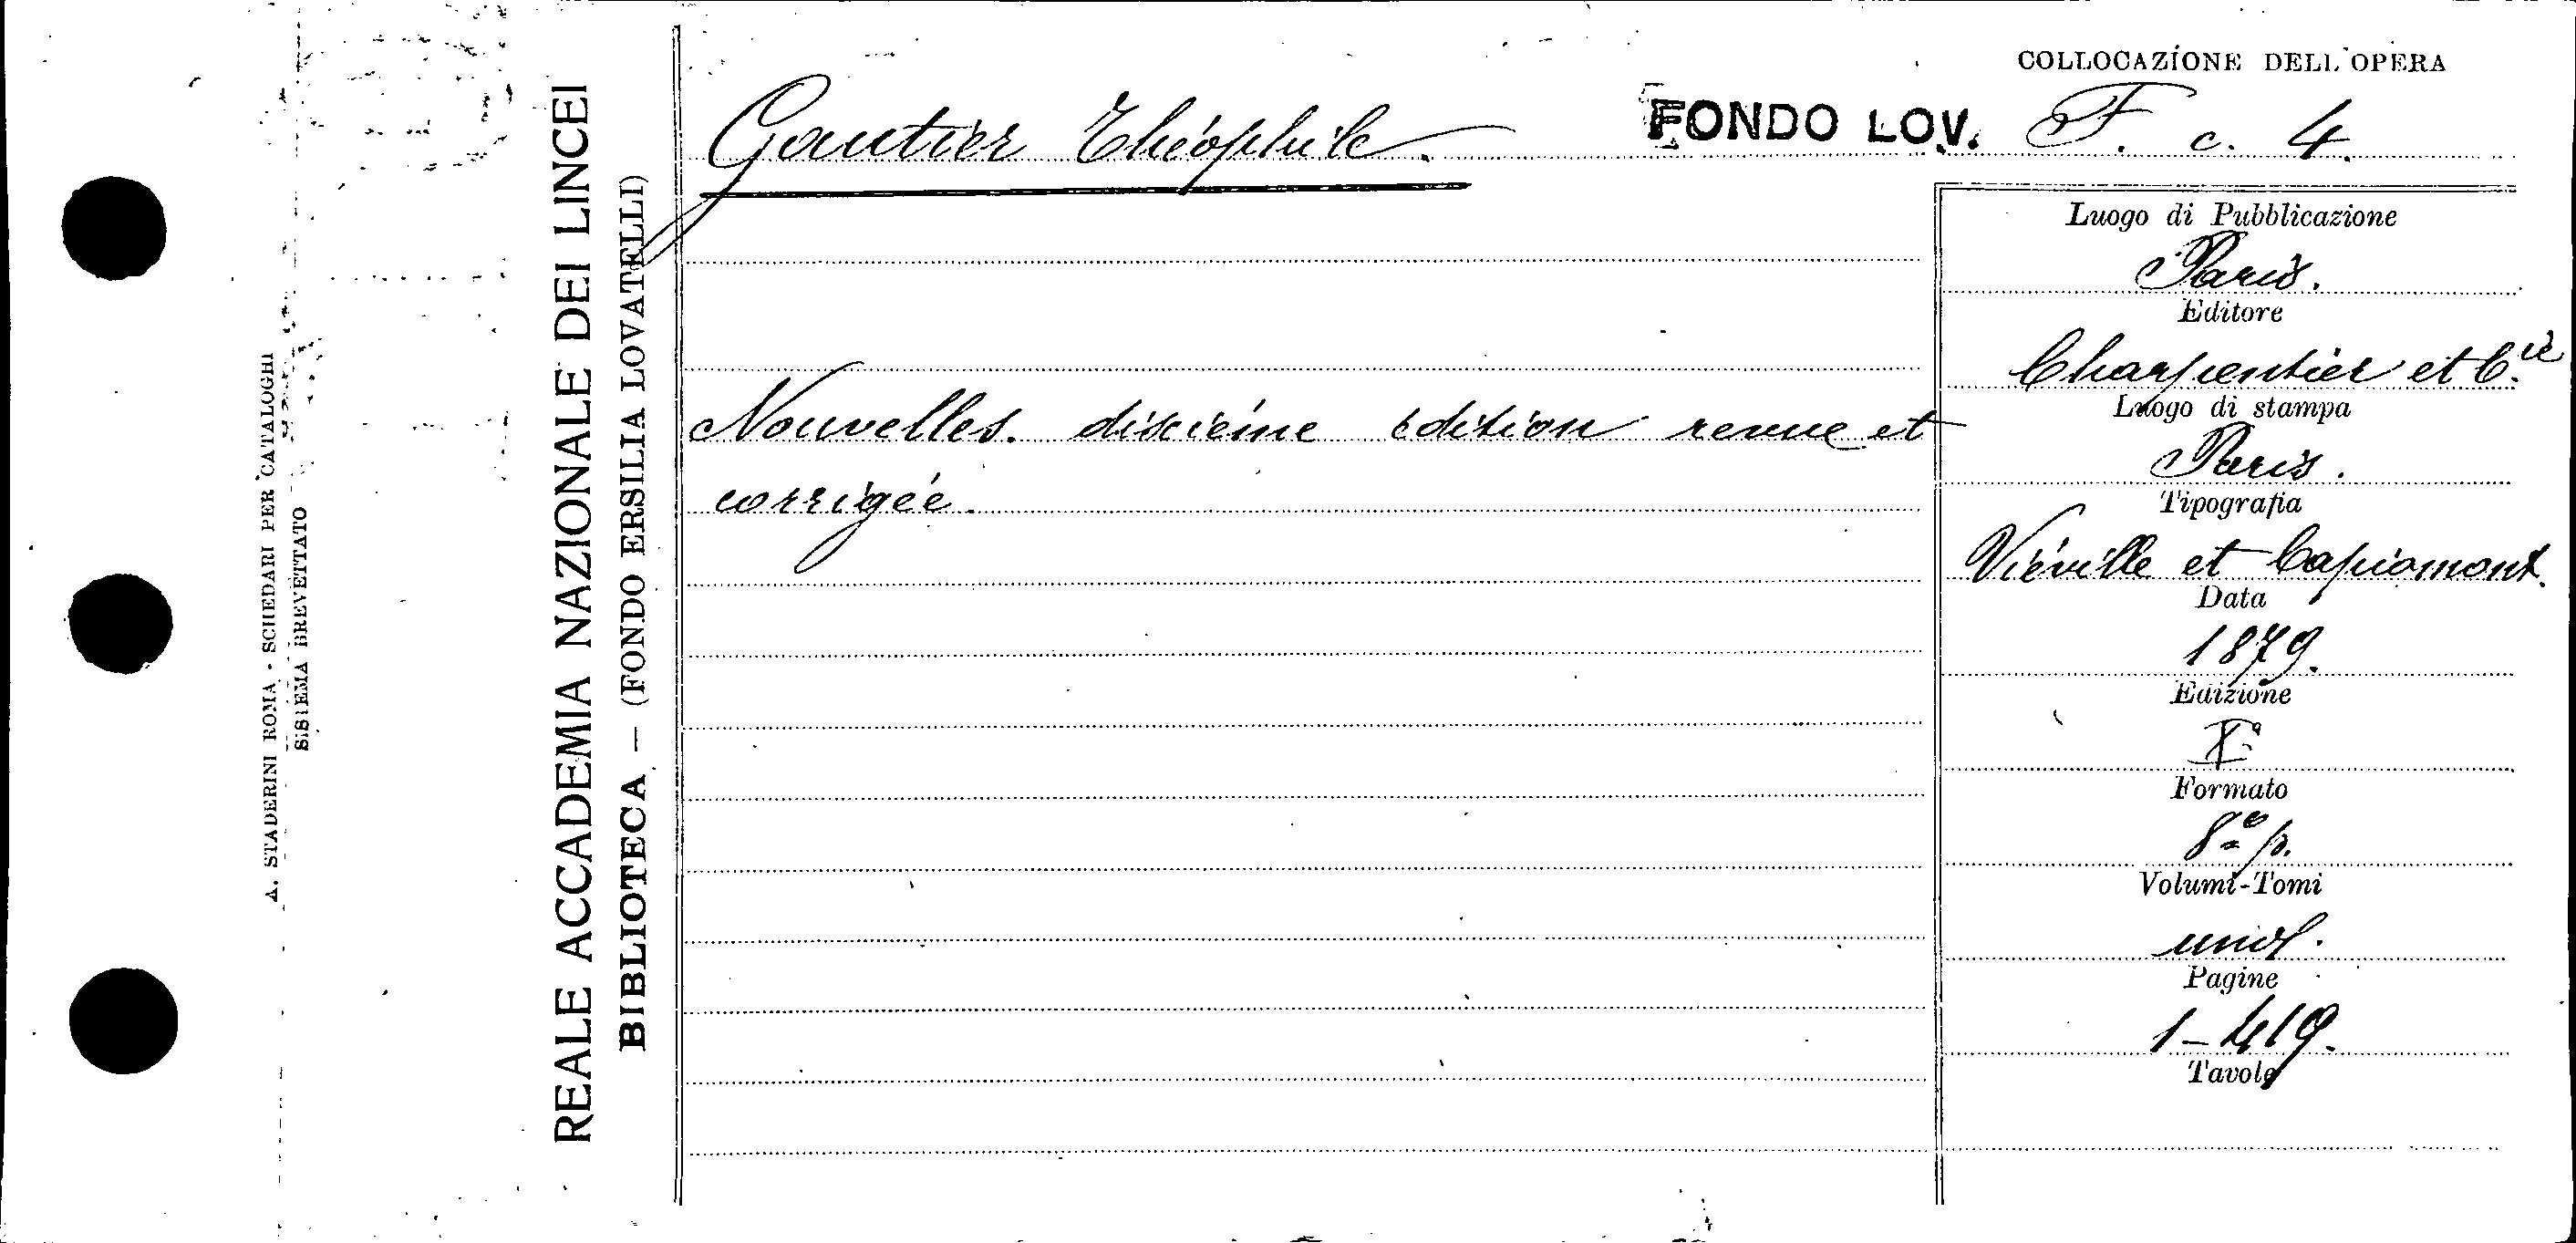 COLLOCAZIONE DELL'OPERA
Gautier Théophile.
FONDO LOV. F. c. 4.
Nouvelles. dixième édition revue et
corrigée.
Luogo di Pubblicazione
Paris.
Editore
Charpentier et C.ie
Luogo di stampa
Paris.
Tipografia
Viéville et Capiomont.
Data
1879.
Edizione
Xª
Formato
8° p.
Volumi-Tomi
unol.
Pagine
1-419.
Tavole
REALE ACCADEMIA NAZIONALE DEI LINCEI
BIBLIOTECA — (FONDO ERSILIA LOVATELLI)
A. STADERINI ROMA - SCHEDARI PER CATALOGHI
SISTEMA BREVETTATO